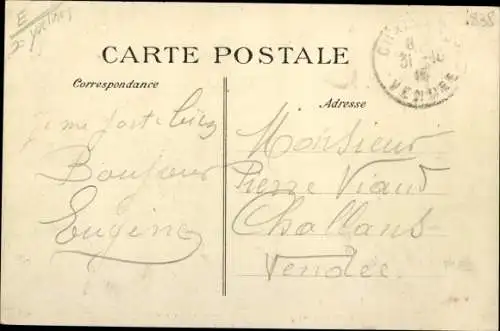 CARTE POSTALE
Correspondance
Adresse
VENDEE
Je me porte bien
Bonjour
Eugène
Monsieur
Pierre Viaud
Challans
Vendée.